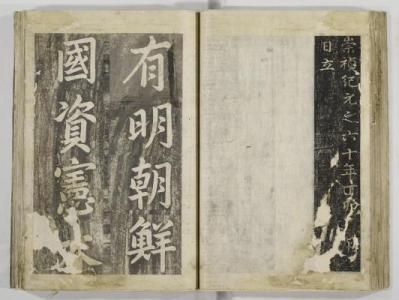 崇禎紀元之六十年丁卯月
日立
有明朝鮮
國資憲大